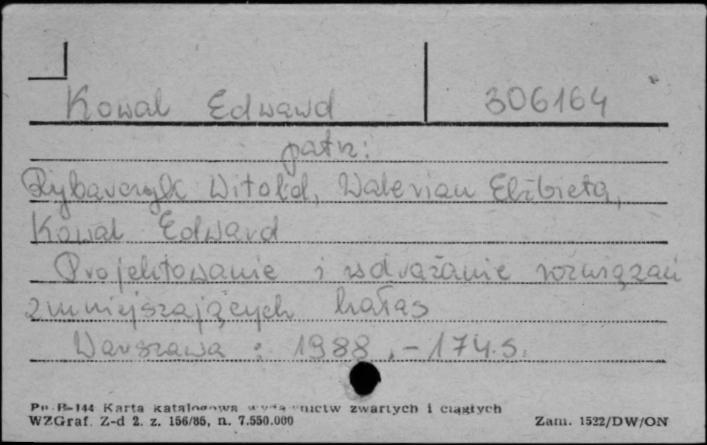 Kowal Edward 306164
patrz:
Rybarczyk Witold, Walerian Elżbieta,
Kowal Edward
Projektowanie i wdrażanie rozwiązań
zmniejszających hałas
Warszawa : 1988 .- 174 s.
Pu B-144 Karta katalogowa wydawnictw zwartych i ciągłych
WZGraf. Z-d 2. z. 156/85, n. 7.550.000 Zam. 1522/DW/ON